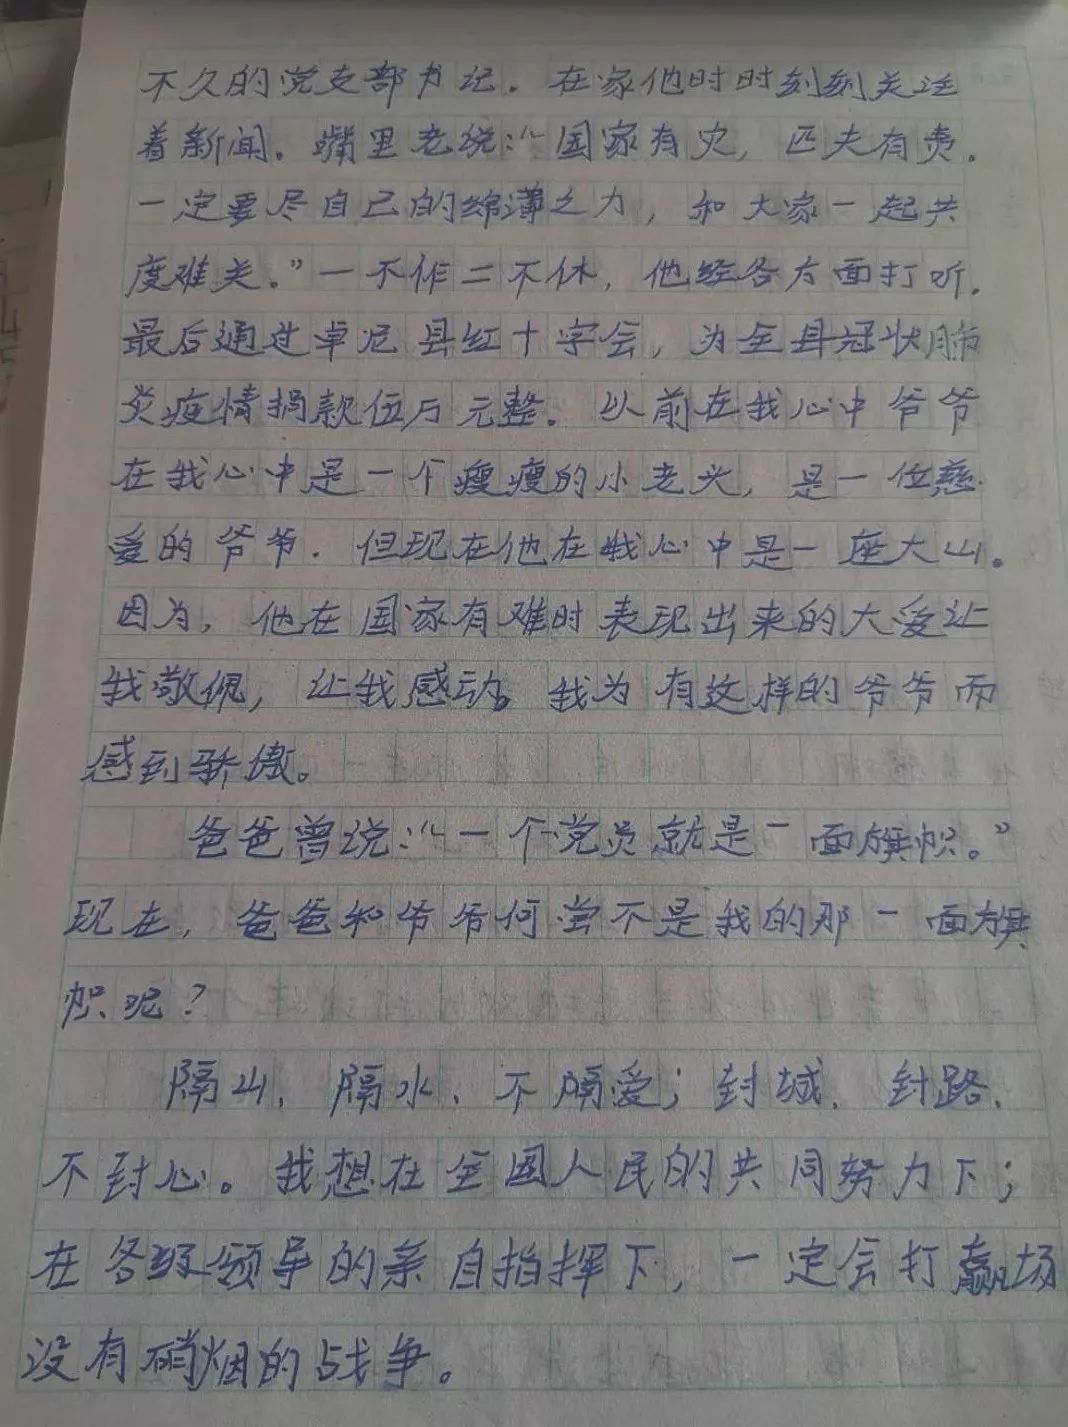 不久的党支部书记。在家他时时刻刻关注
着新闻。嘴里老说：“国家有灾，匹夫有责。
一定要尽自己的绵薄之力，和大家一起共
度难关。”一不作二不休，他经各方面打听。
最后通过卓尼县红十字会，为全县冠状肺
炎疫情捐款伍万元整。以前在我心中爷爷
在我心中是一个瘦瘦的小老头，是一位慈
爱的爷爷．但现在他在我心中是一座大山。
因为，他在国家有难时表现出来的大爱让
我敬佩，让我感动。我为有这样的爷爷而
感到骄傲。
爸爸曾说：“一个党员就是一面旗帜。”
现在，爸爸和爷爷何尝不是我的那一面旗
帜呢？
隔山、隔水、不隔爱；封城、封路、
不封心。我想在全国人民的共同努力下；
在各级领导的亲自指挥下，一定会打赢场
没有硝烟的战争。